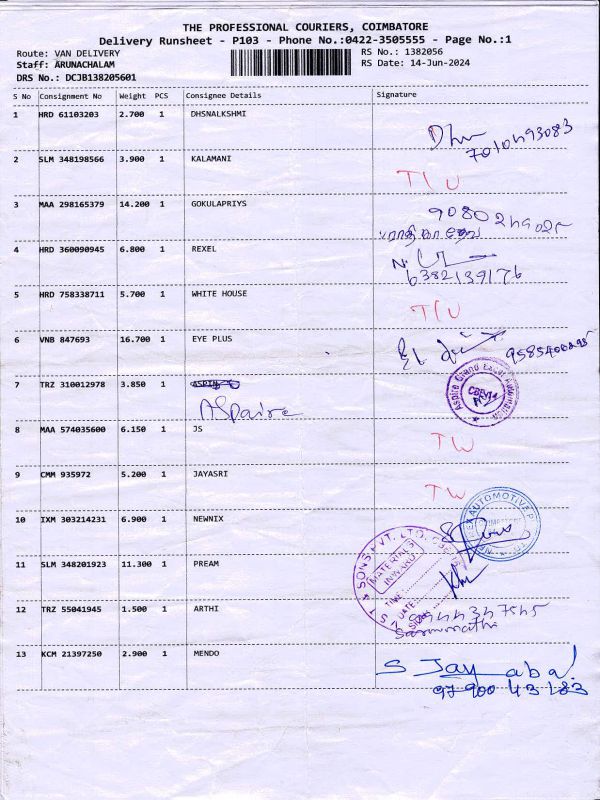 THE PROFESSIONAL COURIERS, COIMBATORE
Delivery Runsheet - P103 - Phone No.:0422-3505555 - Page No.:1
Route: VAN DELIVERY RS No.: 1382056
Staff: ARUNACHALAM RS Date: 14-Jun-2024
DRS No.: DCJB138205601
S No Consignment No Weight PCS Consignee Details Signature
1 HRD 61103203 2.700 1 DHSNALKSHMI
2 SLM 348198566 3.900 1 KALAMANI
3 MAA 298165379 14.200 1 GOKULAPRIYS
4 HRD 360090945 6.800 1 REXEL
6382139176
5 HRD 758338711 5.700 1 WHITE HOUSE
6 VNB 847693 16.700 1 EYE PLUS
7 TRZ 310012978 3.850 1
ASpaire
8 MAA 574035600 6.150 1 JS TW
9 CMM 935972 5.200 1 JAYASRI TW
10 IXM 303214231 6.900 1 NEWNIX
11 SLM 348201923 11.300 1 PREAM
MATERIALS
INWARD
TIME
DATE
12 TRZ 55041945 1.500 1 ARTHI
13 KCM 21397250 2.900 1 MENDO
S Jayabal
97900 43183